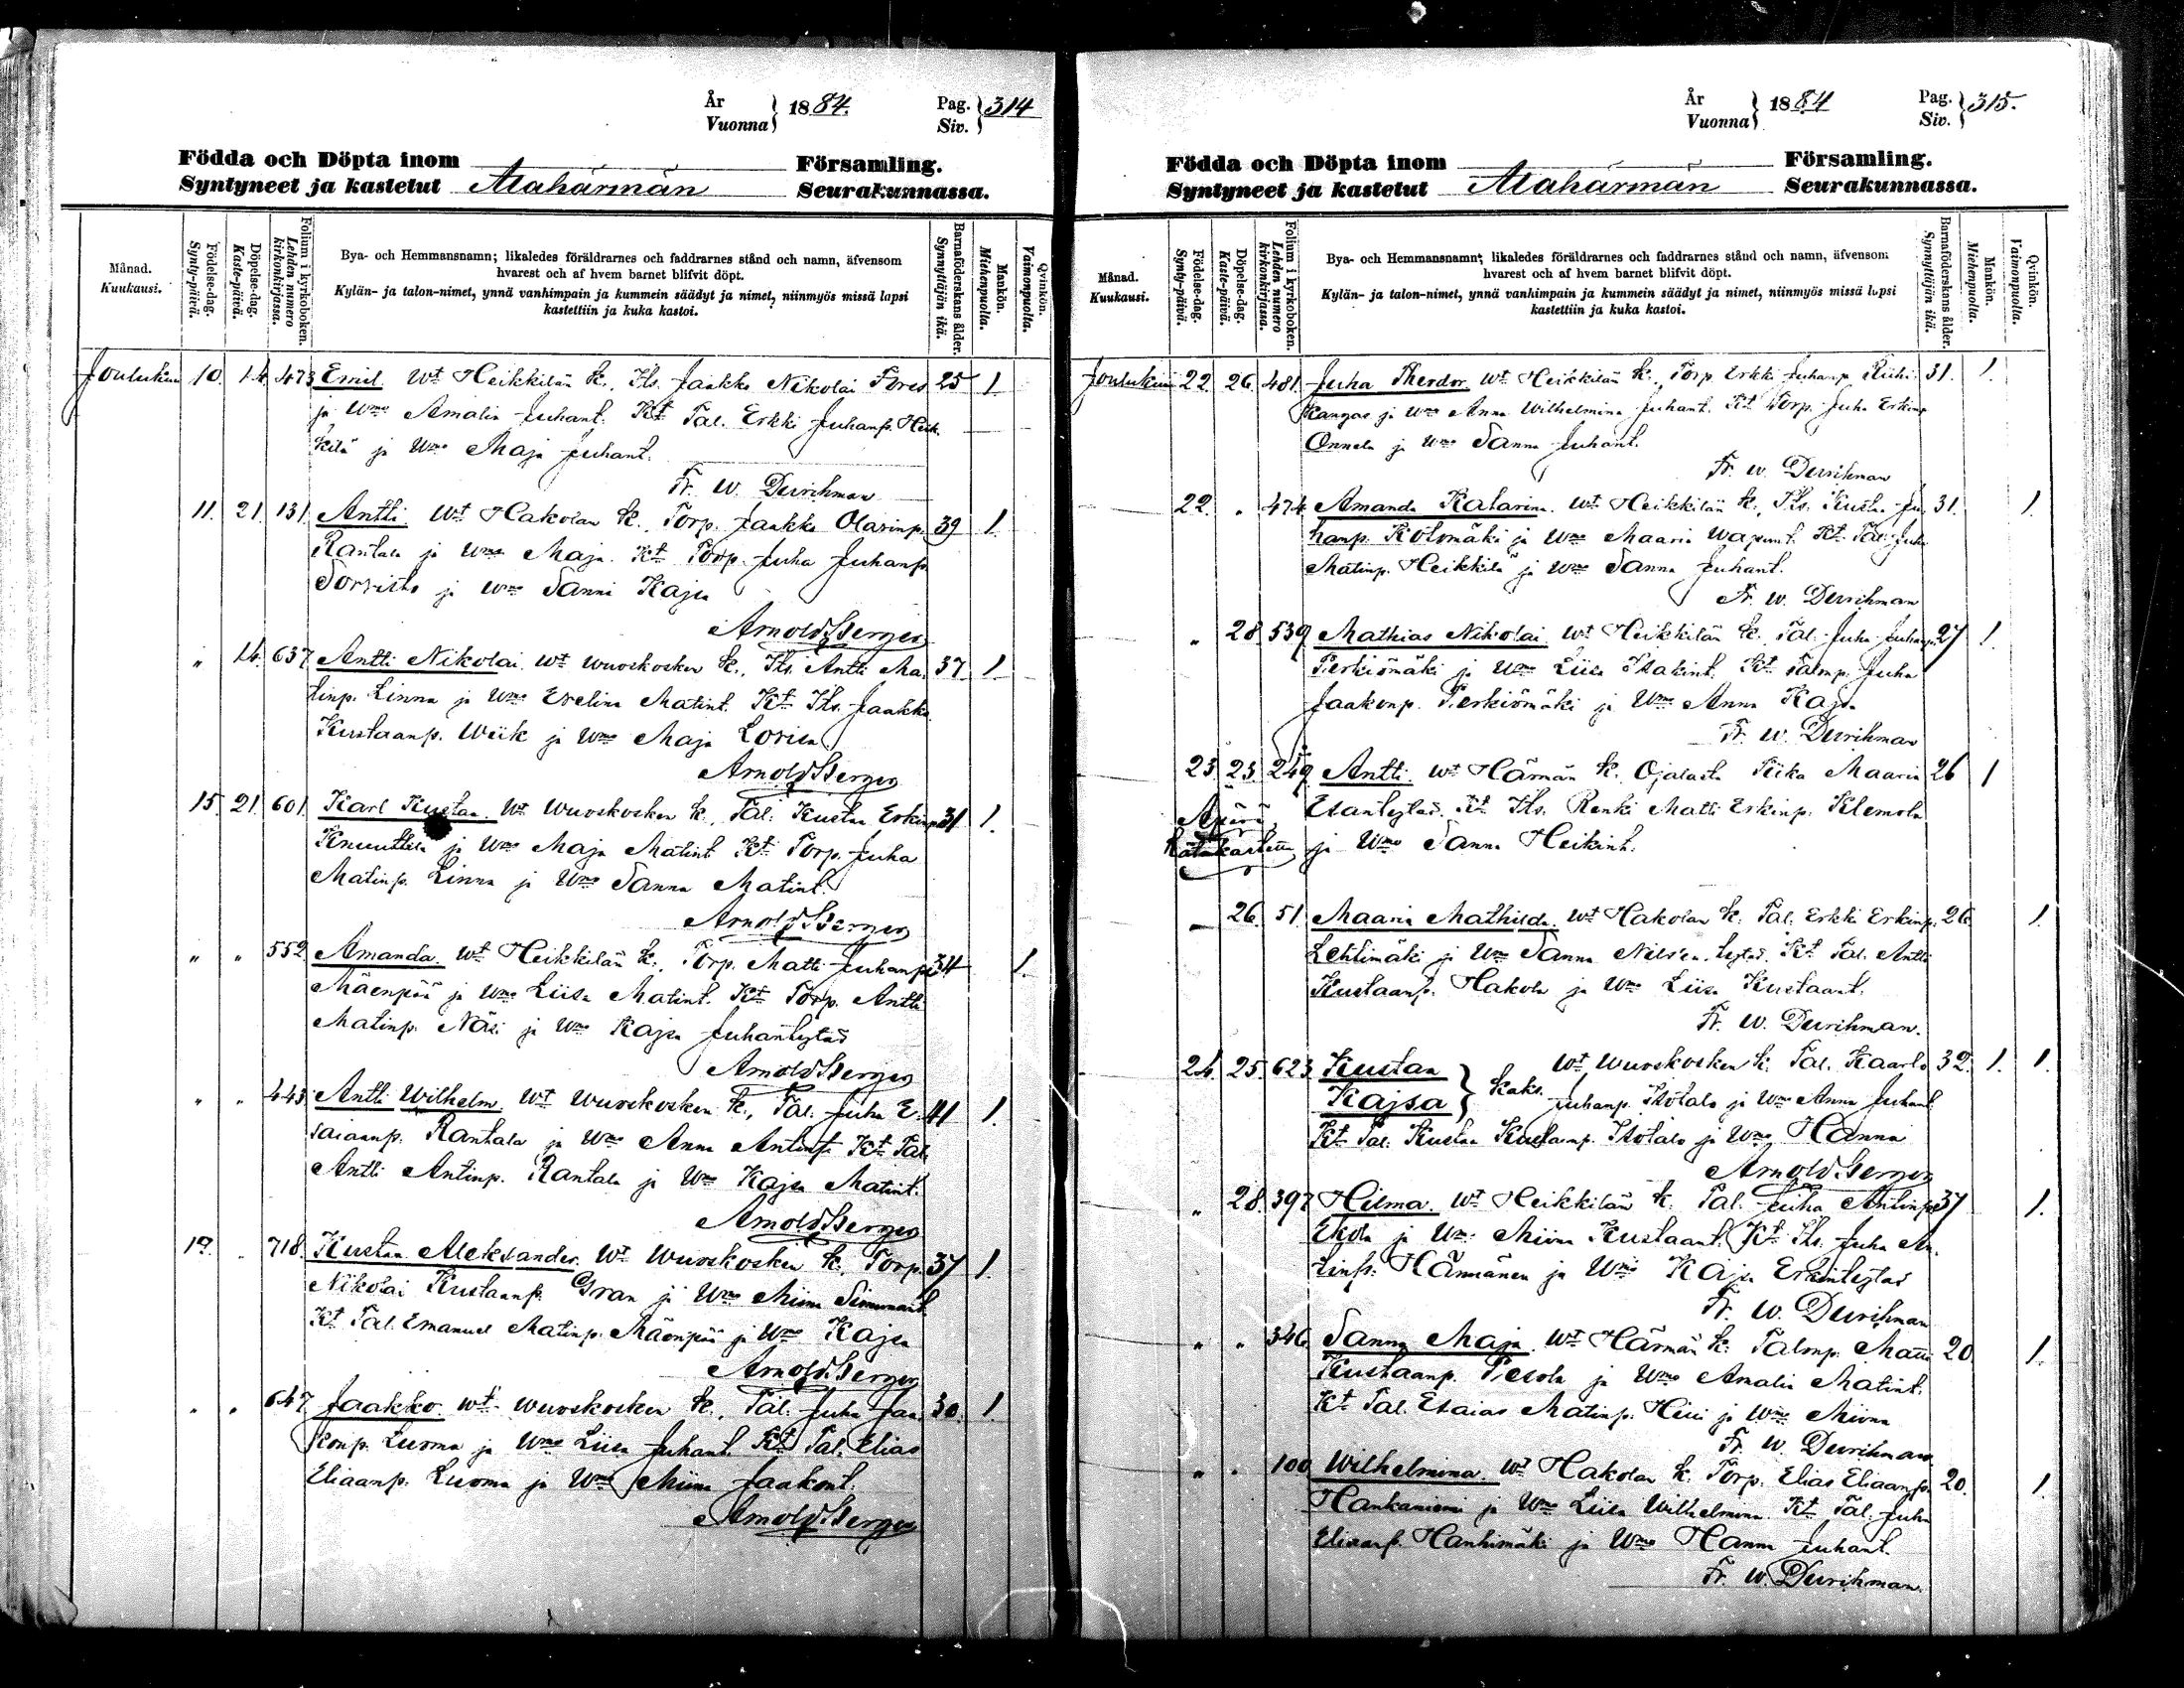 År
Vuonna } 1884.
Pag.
Siv. } 314
Födda och Döpta inom Församling.
Syntyneet ja kastetut Alahärmän Seurakunnassa.
Månad.
Kuukausi.
Födelse-dag.
Synty-päivä.
Döpelse-dag.
Kaste-päivä.
Folium i kyrkoboken.
Lehden numero
kirkonkirjassa.
Bya- och Hemmansnamn; likaledes föräldrarnes och faddrarnes stånd och namn, äfvensom
hvarest och af hvem barnet blifvit döpt.
Kylän- ja talon-nimet, ynnä vanhimpain ja kummein säädyt ja nimet, niinmyös missä lapsi
kastettiin ja kuka kastoi.
Barnaföderskans ålder.
Synnyttäjän ikä.
Mankön.
Miehenpuolta.
Qvinkön.
Vaimonpuolta.
Joulukuu 10. 14. 473 Emil. Wt Heikkilän k., Its. Jaakko Nikolai Fors 25 1
ja Wmo Amalia Juhant. Kt Tal. Erkki Juhanp. Heik-
kilä ja Wmo Maja Juhant.
Fr. W. Durchman
11. 21. 131 Antti. Wt Hakolan k., Torp. Jaakko Olarinp. 39 1.
Rantala ja Wmo Maja. Kt Torp. Juha Juhanp.
ja Wmo Sanni Kajsa
Arnold Berger
" 14. 637 Antti Nikolai. Wt Wuoskosken k., Its. Antti Ma- 37 1
tinp. Linna ja Wmo Evelina Matint. Kt Its. Jaakko
Kustaanp. Wiik ja Wmo Maja Lovisa
Arnold Berger
15. 21. 601 Karl Kustaa. Wt Wuoskosken k., Tal. Kustaa Erkinp. 31 1.
Knuuttila ja Wmo Maja Matint. Kt Torp. Juha
Matinp. Linna ja Wmo Sanna Matint.
Arnold Berger
" " 552 Amanda. Wt Heikkilän k., Torp. Matti Juhanp. 34 1.
Mäenpää ja Wmo Liisa Matint. Kt Torp. Antti
Matinp. Näsi ja Wmo Kajsa Juhantytär
Arnold Berger
" " 443 Antti Wilhelm. Wt Wuoskosken k., Tal. Juha E- 41 1.
saiaanp. Rantala ja Wmo Anna Antint. Kt Tal.
Antti Antinp. Rantala ja Wmo Kajsa Matint.
Arnold Berger
19. . 718. Kustaa Aleksander. Wt Wuoskosken k., Torp. 37 1.
Nikolai Kustaanp. Gran ja Wmo Miina Simunant.
Kt Tal. Emanuel Matinp. Mäenpää ja Wmo Kajsa
Arnold Berger
" " 647 Jaakko. Wt Wuoskosken k., Tal. Juha Jaa- 30. 1.
konp. Luoma ja Wmo Liisa Juhant. Kt Tal. Elias
Eliaanp. Luoma ja Wmo Miina Jaakont.
Arnold Berger
År
Vuonna } 1884
Pag.
Siv. } 315.
Födda och Döpta inom Församling.
Syntyneet ja kastetut Alahärmän Seurakunnassa.
Månad.
Kuukausi.
Födelse-dag.
Synty-päivä.
Döpelse-dag.
Kaste-päivä.
Folium i kyrkoboken.
Lehden numero
kirkonkirjassa.
Bya- och Hemmansnamn; likaledes föräldrarnes och faddrarnes stånd och namn, äfvensom
hvarest och af hvem barnet blifvit döpt.
Kylän- ja talon-nimet, ynnä vanhimpain ja kummein säädyt ja nimet, niinmyös missä lapsi
kastettiin ja kuka kastoi.
Barnaföderskans ålder.
Synnyttäjän ikä.
Mankön.
Miehenpuolta.
Qvinkön.
Vaimonpuolta.
Joulukuu 22. 26. 481. Juha Theodor. Wt Heikkilän k., Torp. Erkki Juhanp. Riihi- 31. 1.
kangas ja Wmo Anna Wilhelmina Juhant. Kt Torp. Juha Erkinp.
Onnela ja Wmo Sanna Juhant.
Fr. W. Durchman
22. " 474 Amanda Katarina. Wt Heikkilän k., Its. Kusta Ju- 31. 1.
hanp. Kotomäki ja Wmo Maaria Wapunt. Kt Tal. Juha
Matinp. Heikkilä ja Wmo Sanna Juhant.
Fr. W. Durchman
" 28. 539 Mathias Nikolai. Wt Heikkilän k. Tal. Juha Juhanp. 27 1.
Perkiömäki ja Wmo Liisa Iisakint. Kt Talonp. Juha
Jaakonp. Perkiömäki ja Wmo Anna Kajsa
Fr. W. Durchman
23. 23. 249. Antti. Wt Härmän k. Ojalasta Piika Maaria 26 1
Äpärä Esantytär. Kt Its. Renki Matti Erkinp. Klemola
Hätäkastettu ja Wmo Sanna Heikint.
" 26. 51. Maaria Mathilda. Wt Hakolan k. Tal. Erkki Erkinp. 26. 1.
Lehtimäki ja Wmo Sanna Nilsen tytär. Kt Tal. Antti
Kustaanp. Hakola ja Wmo Liisa Kustaant.
Fr. W. Durchman.
24. 25. 623 Kustaa Wt Wuoskosken k. Tal. Kaarlo 32. 1. 1.
Kajsa } Kaks. Juhanp. Isotalo ja Wmo Anna Juhant.
Kt Tal. Kustaa Kustaanp. Isotalo ja Wmo Hanna
Arnold Berger
" 28. 397 Hilma. Wt Heikkilän k. Tal. Juha Antinp. 37 1.
Ekola ja Wmo Miina Kustaant. Kt Its. Juha An-
tinp. Hännänen ja Wmo Kajsa Erkintytär
Fr. W. Durchman
" " 346. Sanna Maja. Wt Härmän k. Talonp. Matti 20. 1.
Kustaanp. Pesola ja Wmo Amalia Matint.
Kt Tal. Esaias Matinp. ja Wmo Miina
Fr. W. Durchman.
" " 100 Wilhelmina. Wt Hakolan k. Torp. Elias Eliaanp. 20. 1.
Hankaniemi ja Wmo Liisa Wilhelmina. Kt Tal. Juha
Eliaanp. Hanhimäki ja Wmo Hanna Juhant.
Fr. W. Durchman.